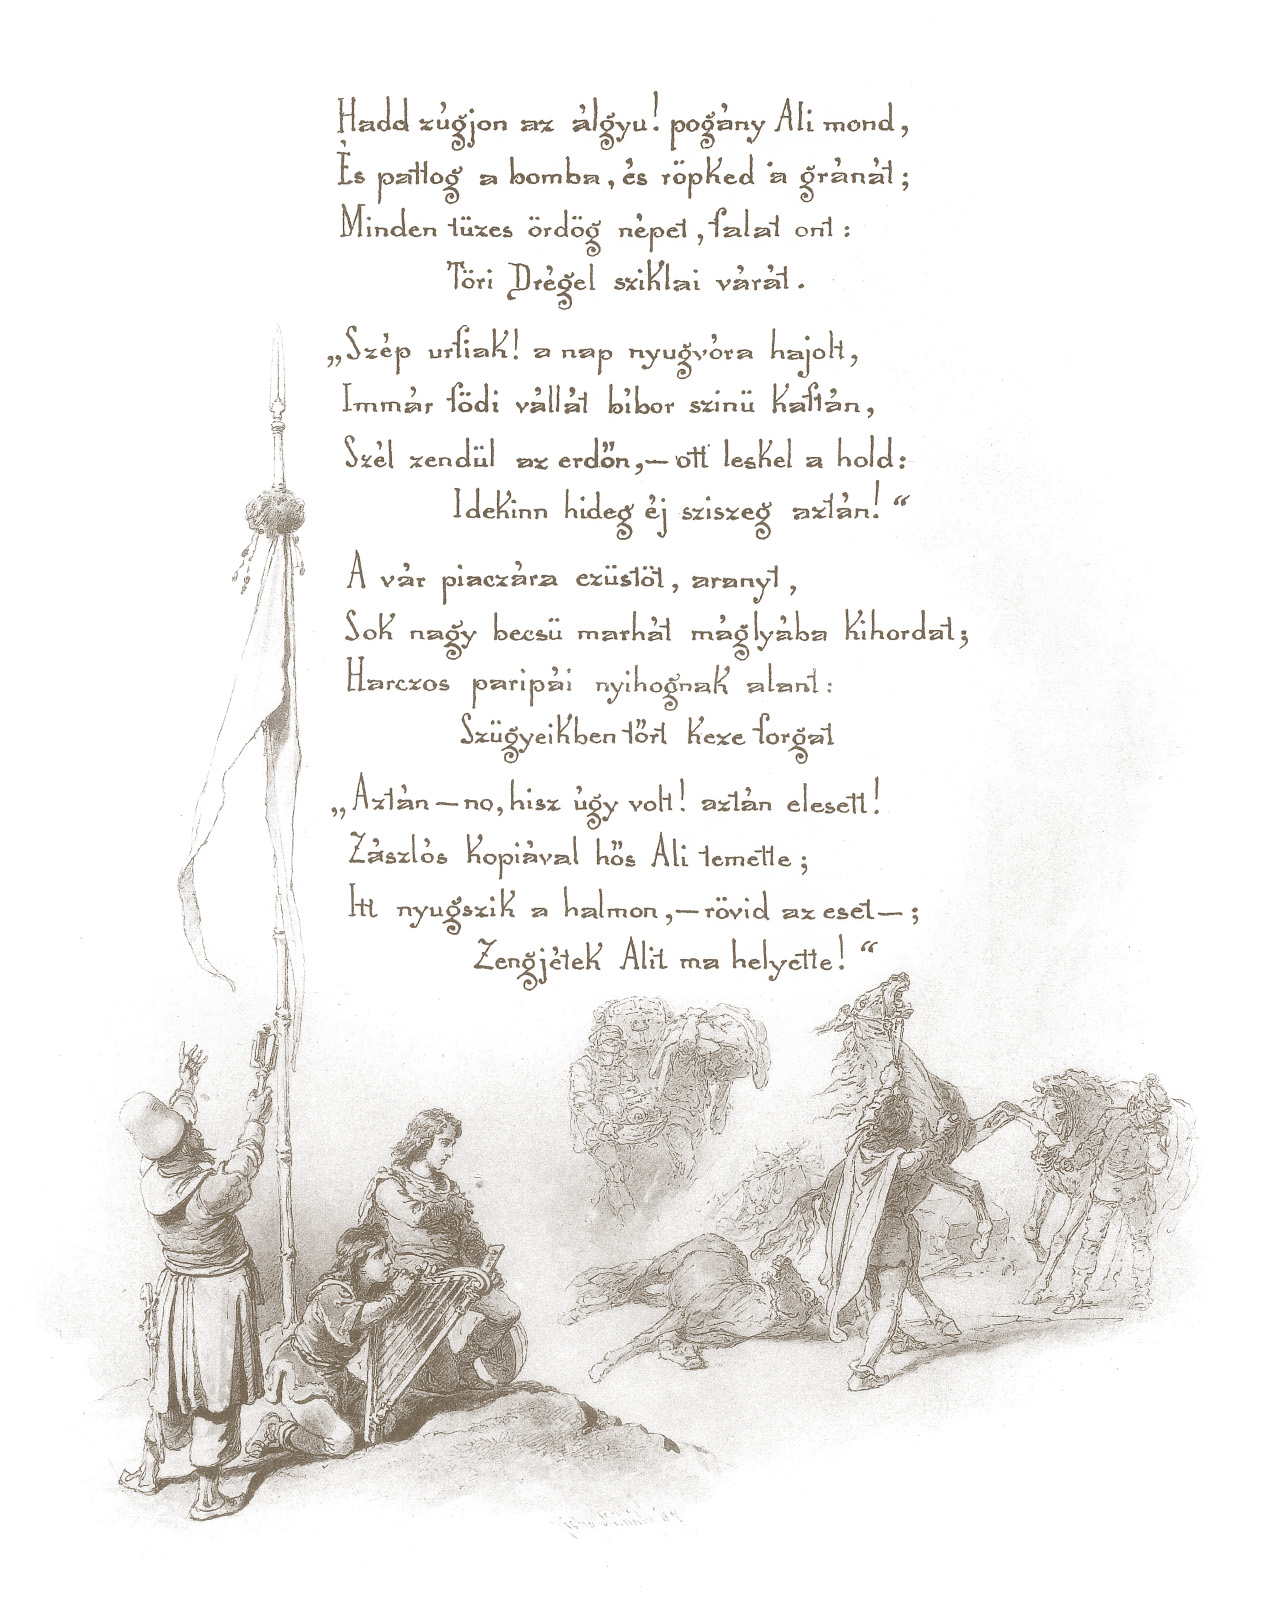 Hadd zúgjon az álgyu! pogány Ali mond,
És pattog a bomba, és röpked a gránát;
Minden tüzes ördög népet, falat ont:
Töri Drégel sziklai várát.
„Szép urfiak! a nap nyugvóra hajolt,
Immár födi vállát bíbor szinü kaftán,
Szél zendül az erdőn, — ott leskel a hold:
Idekinn hideg éj sziszeg aztán!“
A vár piaczára ezüstöt, aranyt,
Sok nagy becsü marhát máglyába kihordat;
Harczos paripái nyihognak alant:
Szügyeikben tőrt keze forgat
„Aztán — no, hisz úgy volt! aztán elesett!
Zászlós kopiával hős Ali temette;
Itt nyugszik a halmon, — rövid az eset —;
Zengjétek Alit ma helyette!“